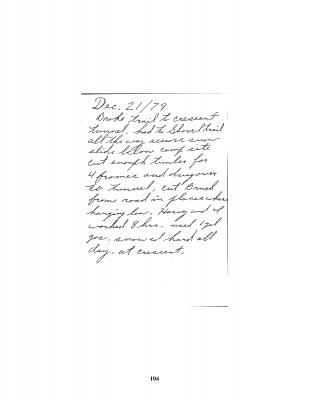 Dec. 21/79
Broke trail to crescent
tunnel. had to Shovel trail
all the way across snow
slide below camp site
cut enough timber for
4 frames and drug over
to tunnel, cut Brush
frome road in places where
hanging low. Harry and I
worked 8 hrs. used 1 gal
gas, snowed hard all
day, at crescent.
104